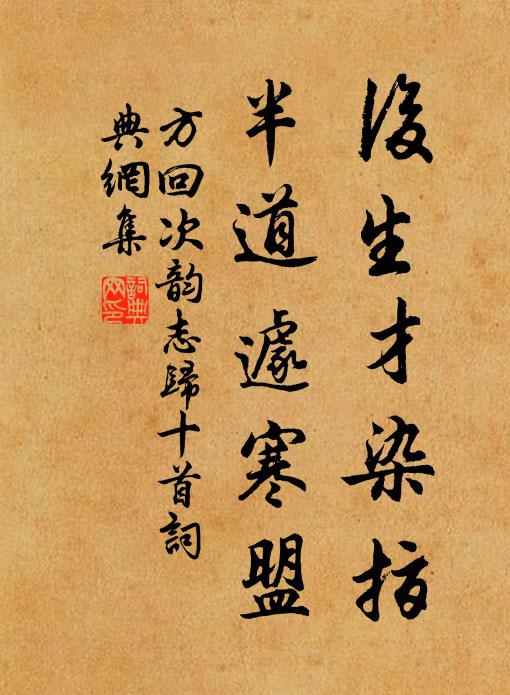 後生才染指
半道遽寒盟
方回次韵志歸十首詞
典網集
詞典網印